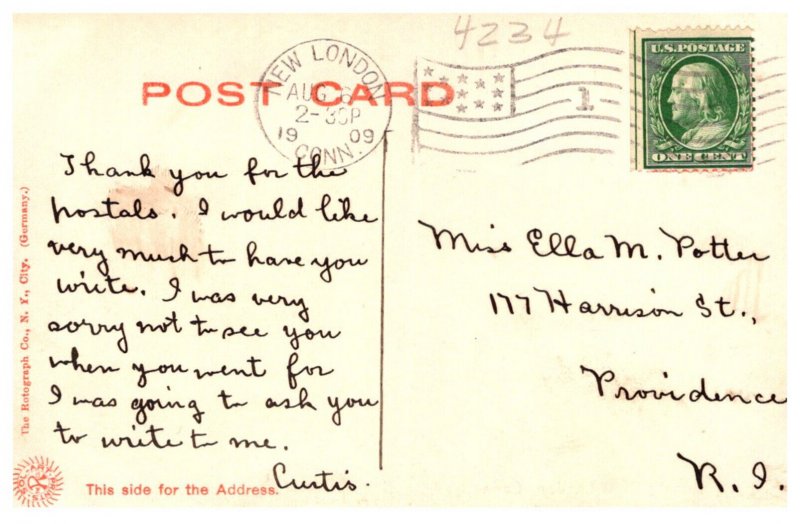 4234
U.S. POSTAGE
ONE CENT
NEW LONDON
AUG 6
2-30P
1909
CONN.
1
POST CARD
Thank you for the
postals. I would like
very much to have you
write. I was very
sorry not to see you
when you went for
I was going to ask you
to write to me.
Curtis.
Miss Ella M. Potter
177 Harrison St.,
Providence
R. I.
The Rotograph Co., N. Y., City. (Germany.)
This side for the Address.